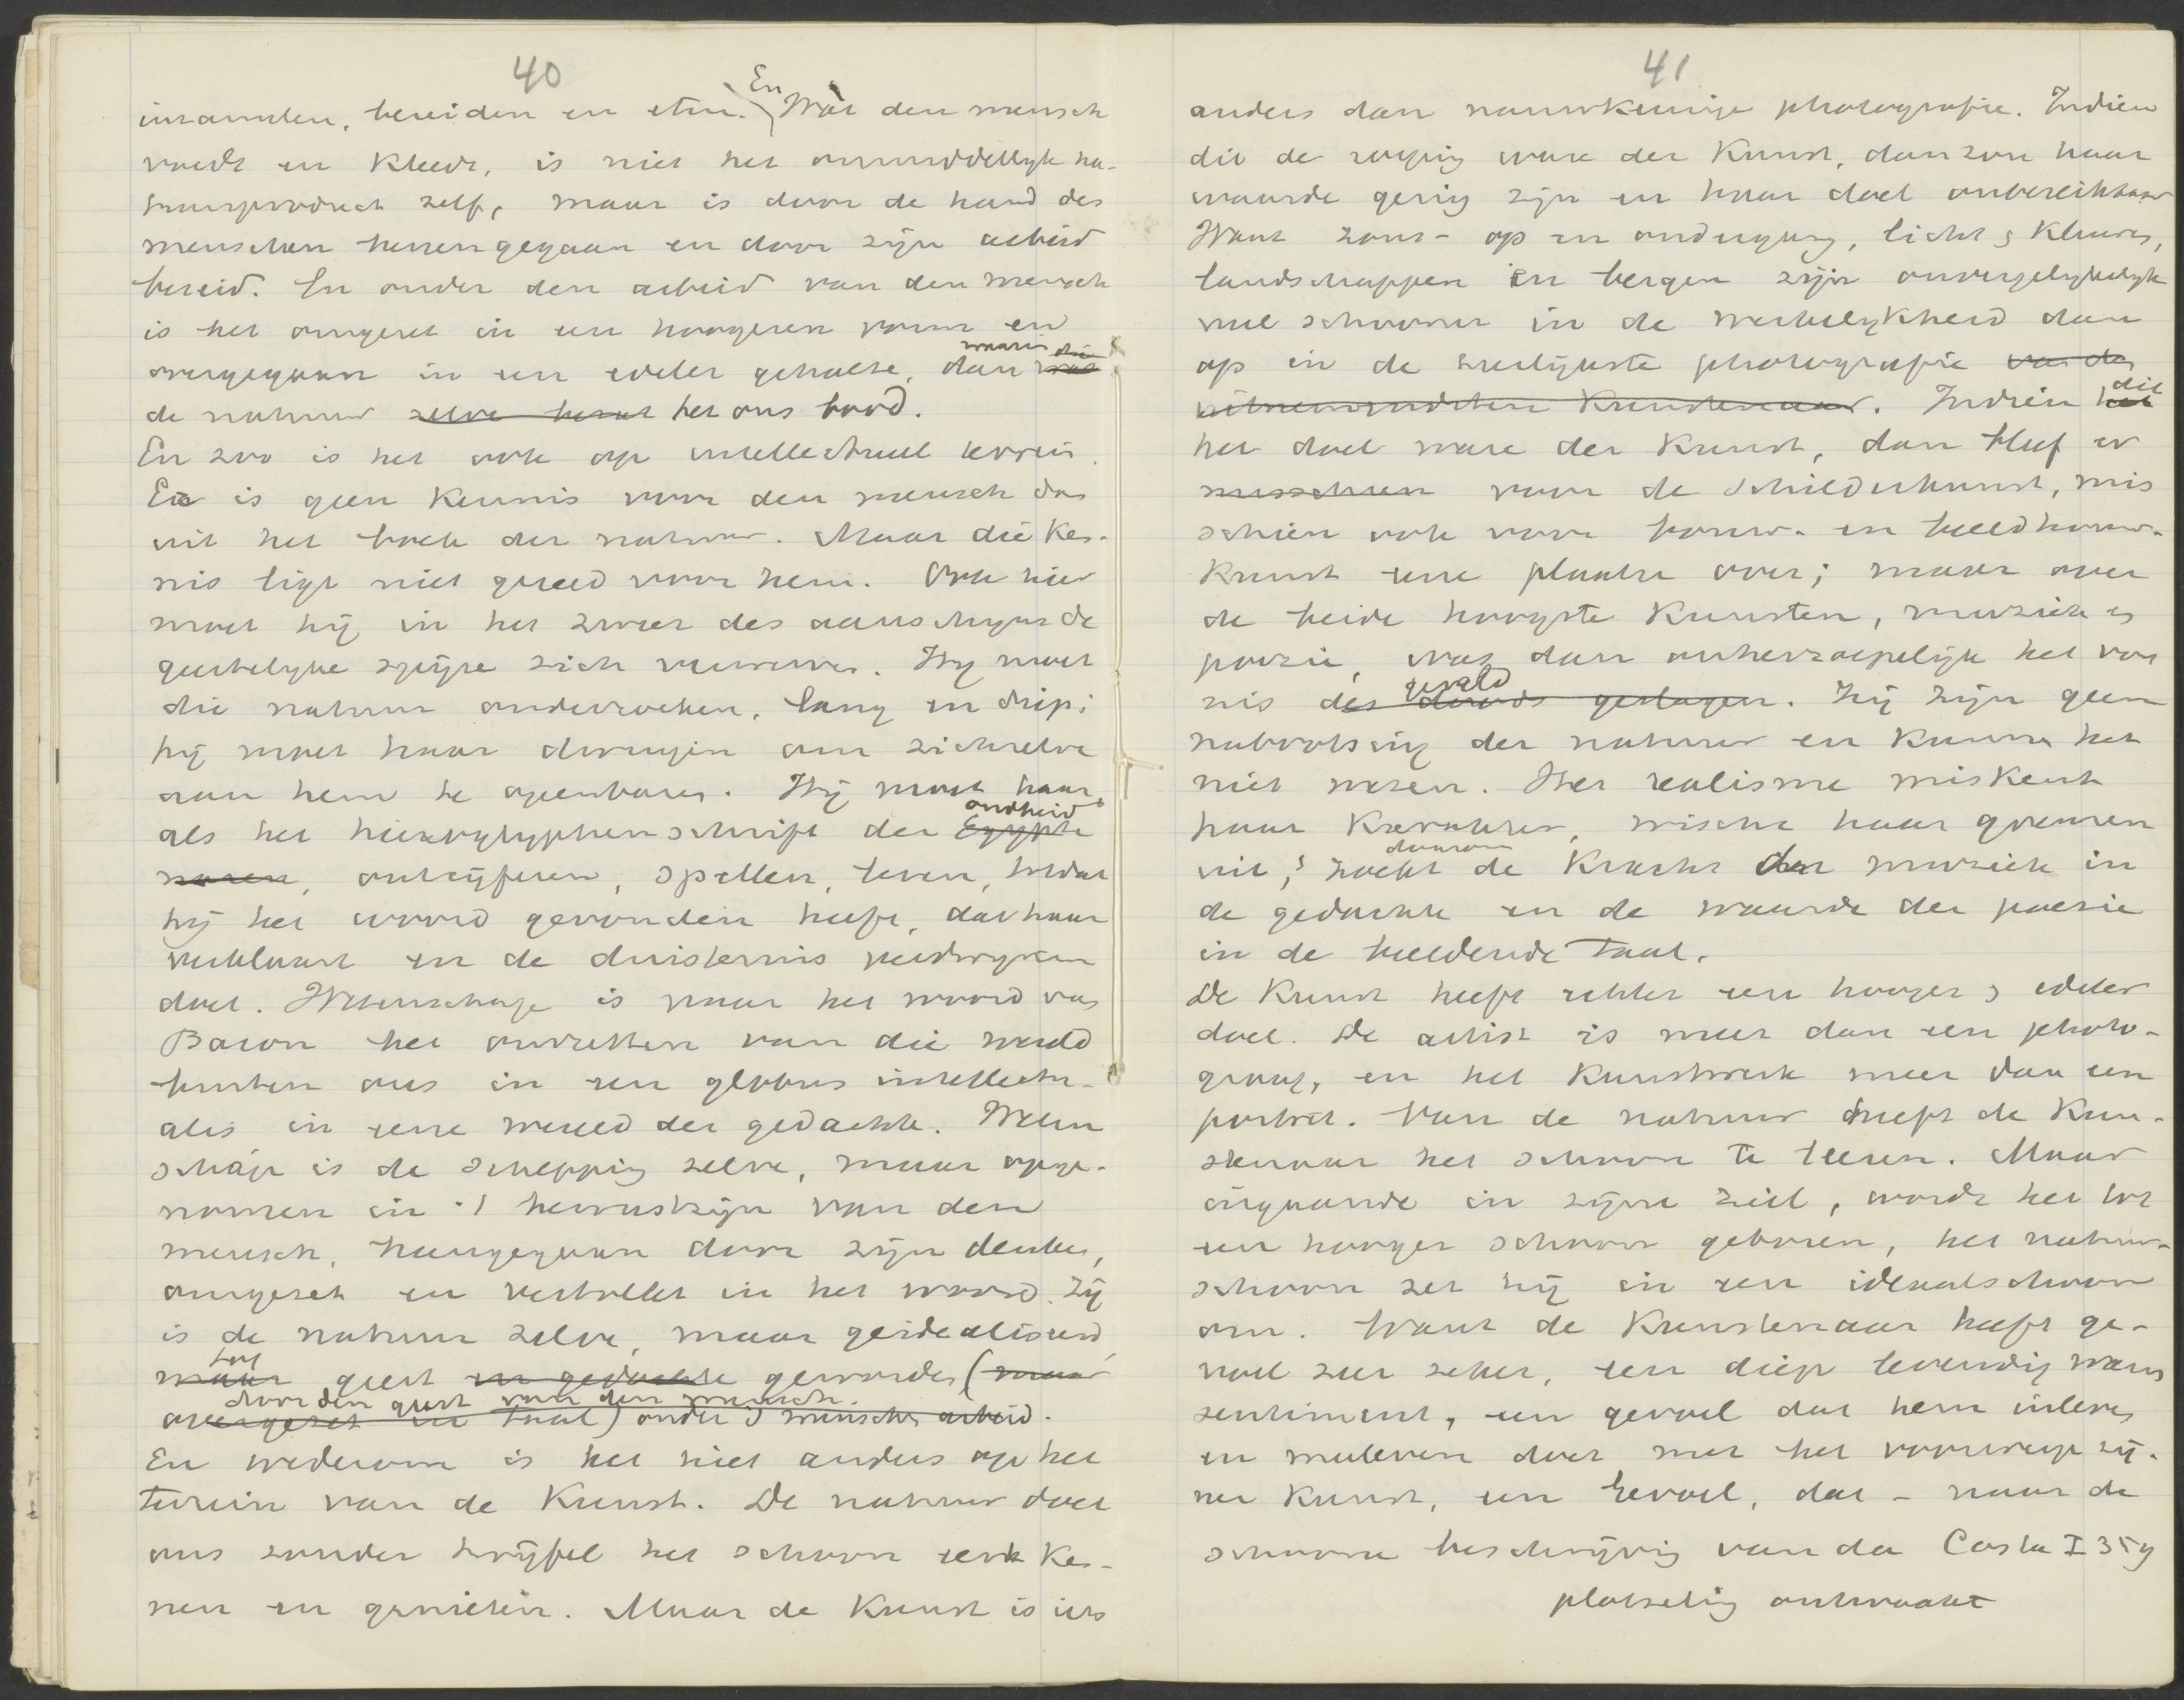 40
inzamelen, bereiden en eten. En Wat den mensch
voedt en kleedt, is niet het onmiddellijk na-
tuurproduct zelf, maar is door de hand des
menschen heengegaan en door zijn arbeid
bereid. En onder den arbeid van den mensch
is het omgezet in een hoogeren vorm en
overgegaan in een edeler gehalte, dan waarin
de natuur zelve het ons bood.
En zoo is het ook op intellectueel terrein.
Er is geen kennis voor den mensch dan
uit het boek der natuur. Maar die ken-
nis ligt niet gereed voor hem. Ook hier
moet hij in het zweet des aanschijns de
geestelijke spijze zich verwerven. Hij moet
die natuur onderzoeken, lang en diep;
hij moet haar dwingen om zichzelve
aan hem te openbaren. Hij moet haar
als het hieroglyphenschrift der oudheid
Egypte
ontcijferen, spellen, lezen, totdat
hij het woord gevonden heeft, dat haar
verklaart en de duisternis verdwijnen
doet. Wetenschap is naar het woord van
Bacon het omzetten van die wereld
buiten ons in een globus intellectu-
alis in eene wereld der gedachte. Weten
schap is de schepping zelve, maar opge-
nomen in 't bewustzijn van den
mensch, heengegaan door zijn denken,
omgezet en vertolkt in het woord. Zij
is de natuur zelve, maar geidealiseerd,
tot
maar geest en gedachte geworden (maar
door den geest van den mensch.
overgezet in taal) onder 's menschen arbeid.
En wederom is het niet anders op het
terrein van de Kunst. De natuur doet
ons zonder twijfel het schoon eerst ken-
nen en genieten. Maar de Kunst is iets
41
anders dan nauwkeurige photografie. Indien
dit de roeping ware der Kunst, dan zou haar
waarde gering zijn en haar doel onbereikbaar
Want zons- op en ondergang, licht & kleuren,
landschappen en bergen zijn onvergelijkelijk
veel schooner in de werkelijkheid dan
op in de sierlijkste photografie van den
uitnemendsten Kunstenaar. Indien dit
het
het doel ware der Kunst, dan bleef er
misschien voor de schilderkunst, mis
schien ook voor bouw- en beeldhouw-
kunst eene plaatse over; maar over
de beide hoogste Kunsten, muziek en
poezie, was dan onherroepelijk het von
nis geveld
des doods geslagen. Zij zijn geen
nabootsing der natuur en kunnen het
niet wezen. Het realisme miskent
haar karakter, wischt haar grenzen
uit, & zoekt daarom de kracht der muziek in
de gedachte en de waarde der poesie
in de beeldende taal.
De Kunst heeft echter een hooger & edeler
doel. De artist is meer dan een photo-
graaf, en het kunstwerk meer dan een
portret. Van de natuur heeft de Kun-
stenaar het schoon te leeren. Maar
ingaande in zijne ziel, wordt het tot
een hooger schoon geboren, het natuur-
schoon zet hij in een ideaalschoon
om. Want de Kunstenaar heeft ge-
voel zeer zeker, een diep levendig waar
sentiment, een gevoel dat hem inleven
en meeleven doet met het voorwerp zij-
ner kunst, een gevoel, dat - naar de
schoone beschrijving van da Costa I 359
plotseling ontwaakt